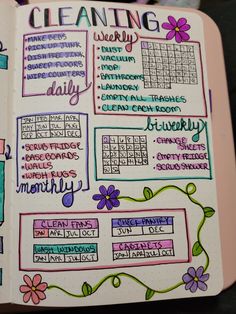 CLEANING
MAKE BEDS
PICK UP JUNK
DISHES/SINK
SWEEP FLOORS
WIPE COUNTERS
daily
Weekly
DUST
VACUUM
MOP
BATHROOMS
LAUNDRY
EMPTY ALL TRASHES
CLEAN EACH ROOM
JAN FEB MAR APR
MAY JUN JUL AUG
SEP OCT NOV DEC
SCRUB FRIDGE
BASEBOARDS
WALLS
WASH RUGS
monthly
bi-weekly
CHANGE SHEETS
EMPTY FRIDGE
SCRUB SHOWER
CLEAN FANS
JAN APR JUL OCT
CHECK PANTRY
JUN DEC
WASH WINDOWS
JAN APR JUL OCT
CABINETS
JAN APR JUL OCT